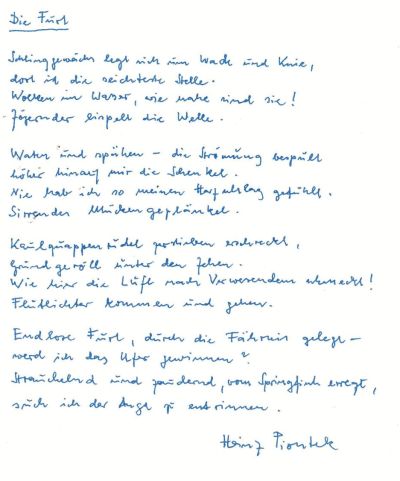 Die Furt
Schlinggewächs legt sich um Wade und Knie,
dort ist die seichteste Stelle.
Wolken im Wasser, wie nahe sind sie!
Zögernder lispelt die Welle.
Waten und spähen – die Strömung bespült
höher hinauf mir die Schenkel.
Nie hab ich so meinen Herzschlag gefühlt.
Sirrendes Mückengeplänkel.
Kaulquappenrudel zerstieben erschreckt,
Grundgeröll unter den Zehen.
Wie hier die Luft nach Verwesendem schmeckt!
Flutlichter kommen und gehen.
Endlose Furt, durch die Fährnis gelegt –
werd ich das Ufer gewinnen?
Strauchelnd und zaudernd, vom Springfisch erregt,
such ich der Angst zu entrinnen.
Heinz Piontek